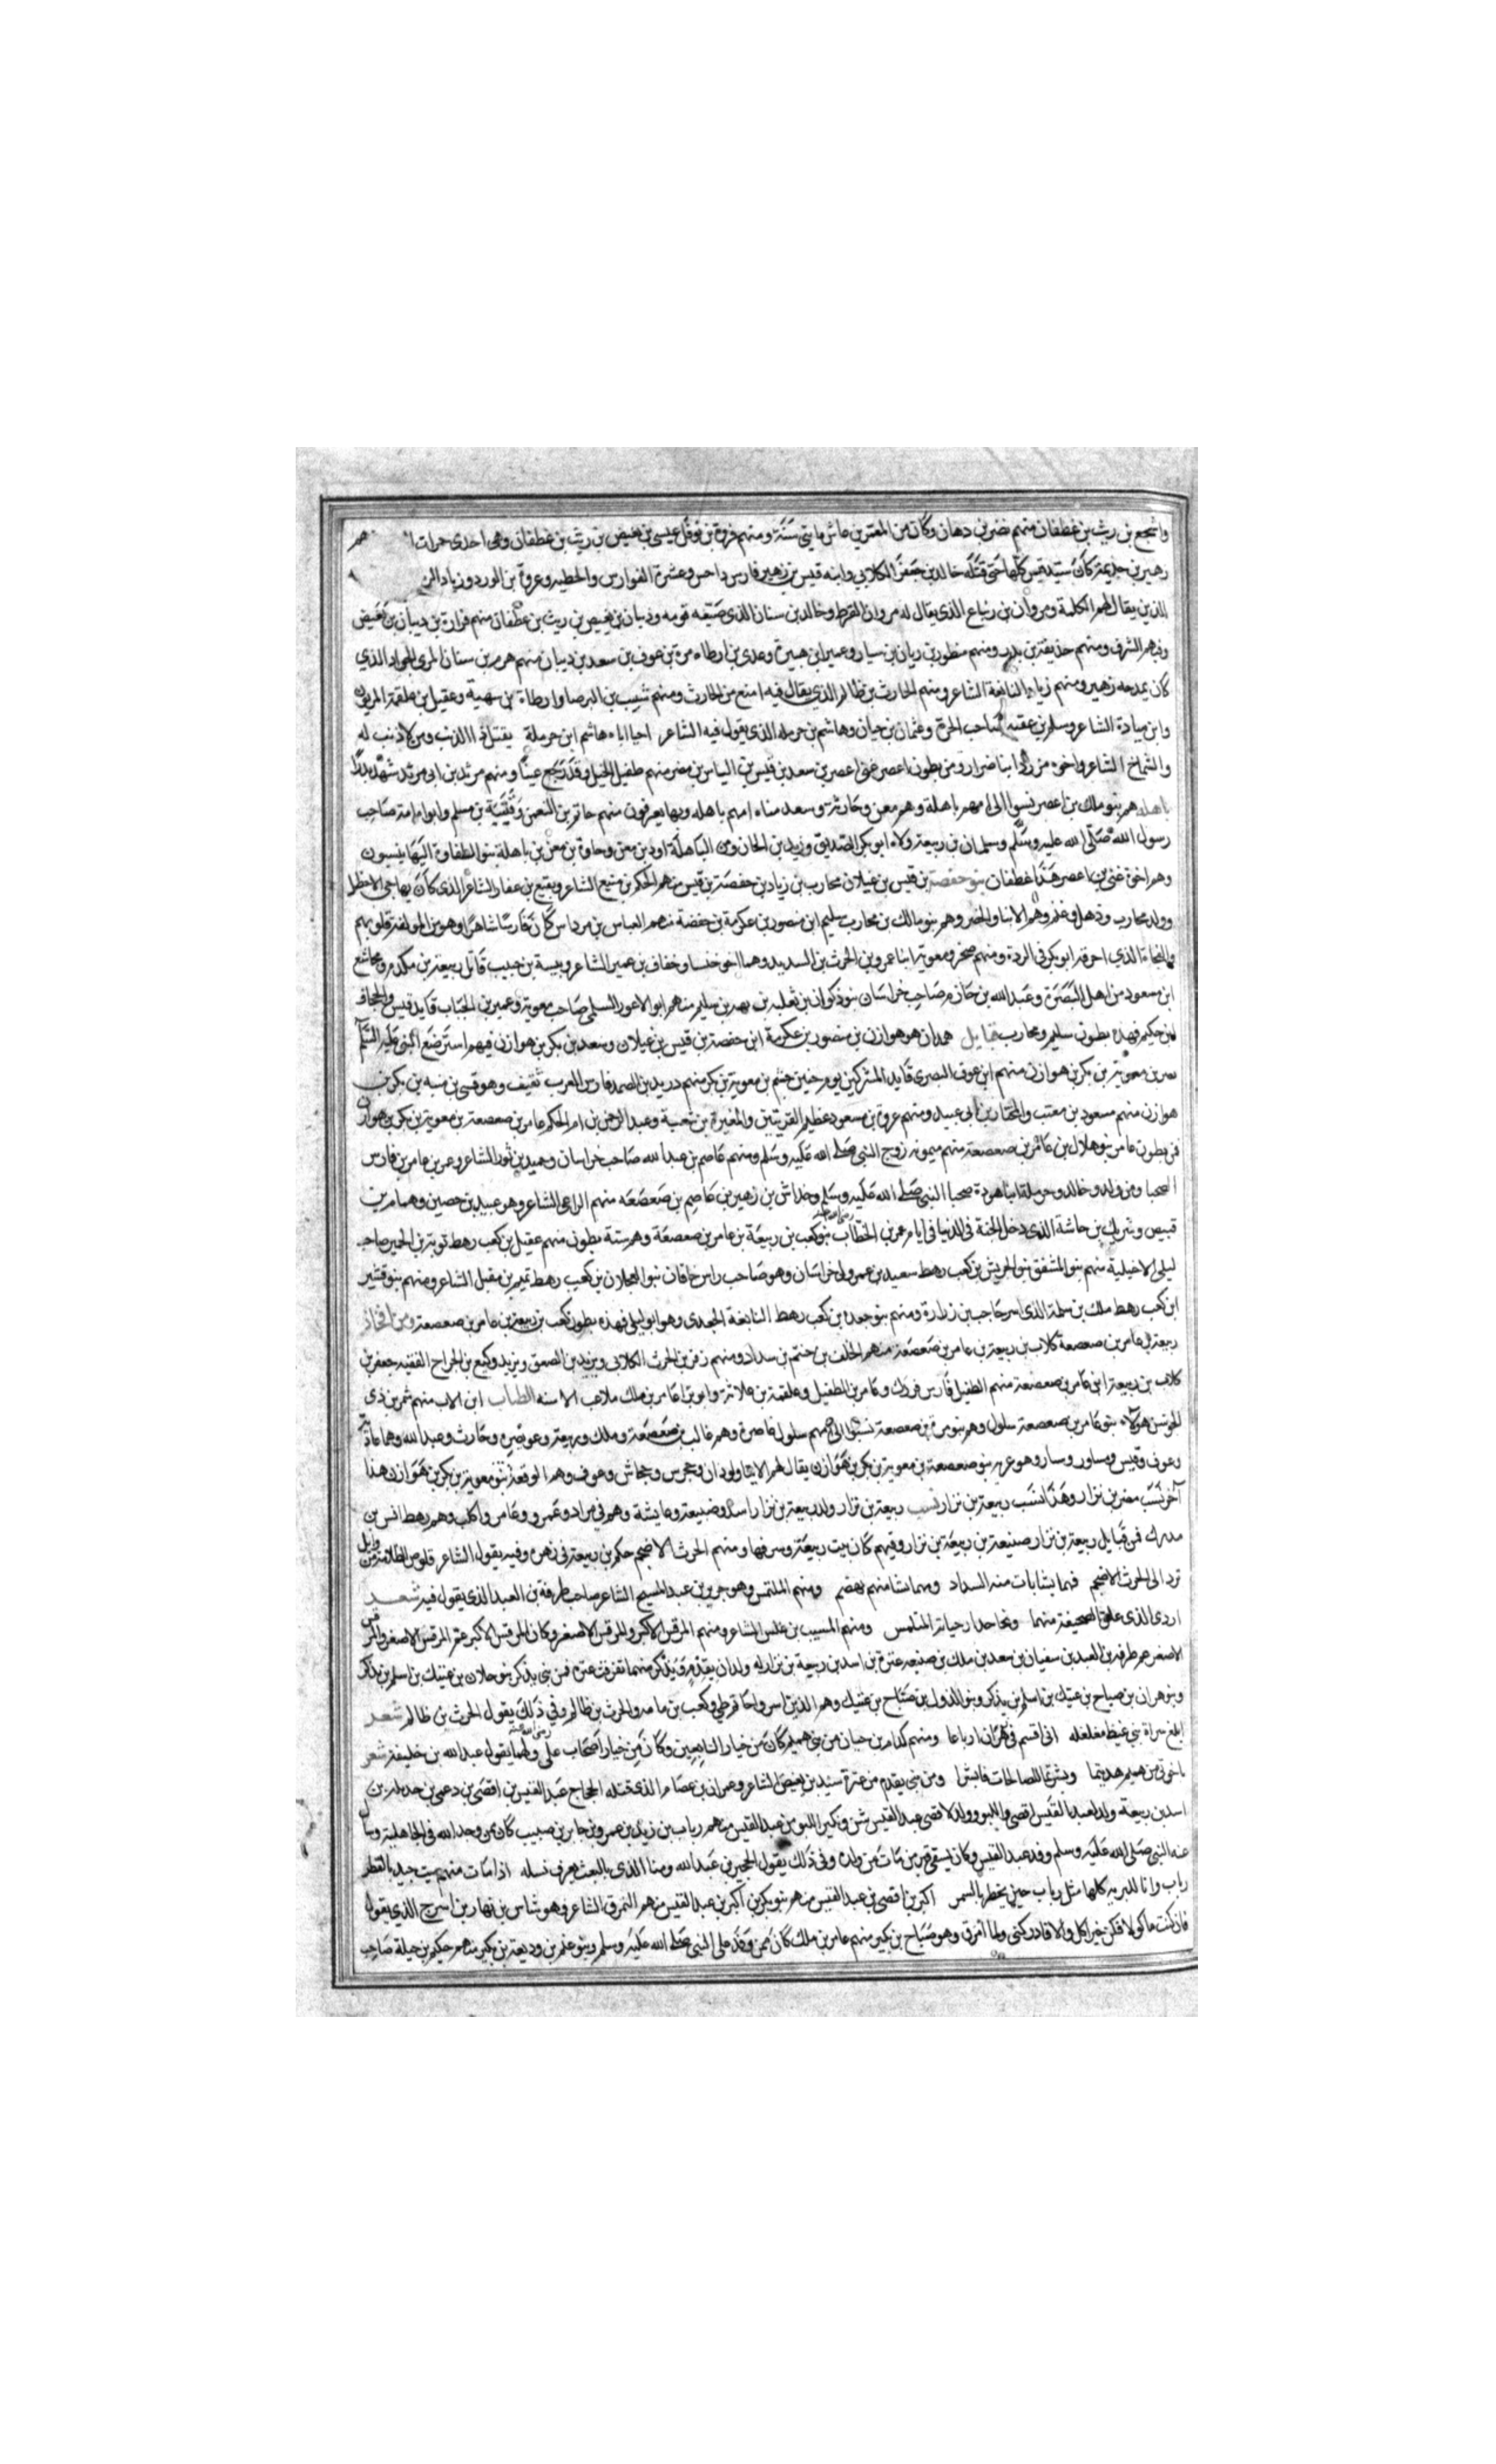 واشجع بن ريث بن غطفان منهم نصر بن دهان وكان من المعمرين عاش مايتى سنة ومنهم فروة بن نوفل عيسى بن بغيض بن ريث بن غطفان وهى احدى جمرات
زهير بن جذيمة كان سيد قيس كلها حتى قتله خالد بن جعفر الكلابي وابنه قيس بن زهير فارس داحس وعشرة الفوارس والحطيه وعروة بن الورد وزياد
الذين يقال لهم الكلمة ومروان بن زنباع الذى يقال له مروان القرط وخالد بن سنان الذى ضيعه قومه وذبيان بن بغيض بن ريث بن غطفان منهم فزارة بن ديبان بن بغيض
وفيهم الشرف ومنهم حذيفة بن بدر ومنهم منظور بن زبان بن سيار وعمير ابن هبيرة وعدى بن ارطاه مرة بن عوف بن سعد بن ديبان منهم هرم بن سنان المرى الجواد الذي
كان يمدحه زهير ومنهم زياد النابغة الشاعر ومنهم الحارث بن ظالم الذي يقال فيه امنع من الحارث ومنهم شبيب بن البرصا وارطاة بن سهية وعقيل ابن علقمة المريان
وابن ميادة الشاعر وسلم بن عقبه صاحب الحرة وعثمان بن حيان وهاشم بن حرمله الذى يقول فيه الشاعر احيا اباه هاشم ابن حرملة يقتل ذا الذنب ومن لا ذنب له
والشماخ الشاعر واخوه مزرد ابنا ضرار ومن بطون اعصر غنى اعصر بن سعد بن قيس بن الياس بن مضر منهم طفيل الخيل وقد ومنهم مرثد بن ابى مرثد شهد بدرا
باهله هم بنو ملك بن اعصر نسبوا الى امهم باهلة وهم معن وحارثة وسعد مناه امهم باهله وبها يعرفون منهم حاتم بن النعمن وقتيبة بن مسلم وابو امامة صاحب
رسول الله صلى الله عليه وسلم وسلمان بن ربيعة ولاه ابو بكر الصديق وزيد بن الحان ومن الباهلة اود بن معن وجاوة بن معن بن باهلة بنو الطفاوة اليها ينسبون
وهم اخوة غنى بن اعصر هذا غطفان بنو حفصة بن قيس بن غيلان محارب بن زياد بن حفصة بن قيس منهم الحكم بن منيع الشاعر وبقيع بن عفار الشاعر الذى كان يهاجى الاخطل
وولد محارب وذهل وغنم وهم الابنا والخضر وهم بنو مالك بن محارب سليم ابن منصور بن عكرمة بن حفصة منهم العباس بن مرداس كان فارسا شاعرا وهو من المولفة قلوبهم
والفجاة الذي احرقه ابو بكر فى الردة ومنهم صخر ومعوية ابنا عمرو بن الحرث بن السديد وهما اخو خنسا وخفاف بن عمير الشاعر وبيسة بن حبيب قاتل ربيعة بن مكدم ومجاشع
ابن مسعود من اهل البصرة وعبد الله بن حازم صاحب خراسان بنو ذكوان بن ثعلبه بن بهد بن سليم منهم ابو الاعور السلمى صاحب معوية وعمير بن الحباب قايد قيس والجحاف
ابن حكيم فهده بطون سليم ومحارب قبايل همدان هو هوازن بن منصور بن عكرمة ابن حفصة بن قيس بن غيلان وسعد بن بكر بن هوازن فيهم استرضع النبى عليه السلام
نصر بن معوية بن بكر بن هوازن منهم ابن عوف البصرى قايد المشركين يوم حنين جثم بن معوية بن بكر منهم دريد بن الصمد فارس العرب ثقيف وهو قسى بن منبه بن بكر بن
هوازن منهم مسعود بن معتب والمختار بن ابى عبيد ومنهم عروة بن مسعود عظيم القريتين والمغيرة بن شعبة وعبد الرحمن بن ام الحكم عامر بن صعصعة بن معوية بن بكر بن هوازن
فمن بطون عامر بنو هلال بن عامر بن صعصعة منهم ميمونه زوج النبى صلى الله عليه وسلم ومنهم عاصم بن عبد الله صاحب خراسان وحميد بن ثور الشاعر وعمر بن عامر بن فارس
الصحبا ومن ولده خالد وحرملة ابنا هودة صحبا النبى صلى الله عليه وسلم وخداش بن زهير بن عاصم بن صعصعه منهم الراعى الشاعر وهو عبيد بن حصين وهمام بن
قبيص وشريك بن حاشة الذى دخل الجنة فى الدنيا فى ايام عمر بن الخطاب رضى الله عنه بنو كعب بن ربيعة بن عامر بن صعصعة وهم ستة بطون منهم عقيل بن كعب رهط توبة بن الحمير صاحب
ليلى الاخيلية منهم بنو المنتفق بنو الحريش بن كعب رهط سعيد بن عمرو ولى خراسان وهو صاحب راس خاقان بنو العجلان بن كعب رهط تميم بن مقبل الشاعر ومنهم بنو قشير
ابن كعب رهط ملك بن سلمة الذى اسر حاجب بن زرارة ومنهم بنو جعده بن كعب رهط النابغة الجعدى وهو ابو ليلى فهذه بطون كعب بن ربيعة بن عامر بن صعصعة ومن افخاذ
ربيعة بن عامر بن صعصعة كلاب بن ربيعة بن عامر بن صعصعة منهم المحلف بن حنتم بن سداد ومنهم زفر بن الحرث الكلابى ويزيد بن الصعق ويزيد وكيع بن الجراح الفقيه جعفر بن
كلاب بن ربيعة ابن عامر بن صعصعة منهم الطفيل فارس قرزل وعامر بن الطفيل وعلقمة بن علاثة وابو برا عامر بن ملك ملاعب الاسنه الطباب ابن الاب منهم شمر بن ذى
الجوشن هولاء بنو عامر بن صعصعة سلول وهم بنو مرة بن صعصعة نسبوا الى امهم سلول غاصرة وهم غالب بن صعصعة وملك وربيعة وعويص وحارث وعبد الله وهما عادية
وعوف وقيس ومساور وسار وهو عريه بنو صعصعة بن معوية بن بكر بن هوازن يقال لهم الابنا ولوذان وجحوس وجحاش وعوف وهم الوقعة بنو معوية بن بكر بن هوازن هذا
آخر نسب مضر بن نزار وهذا نسب ربيعة بن نزار نسب ربيعة بن نزار ولد ربيعة بن نزار اسدا وضبيعة وعايشة وهم فى مراد وعمرو وعامر واكلب وهم رهط انس بن
مدرك فمن قبايل ربيعة بن نزار صبيعة بن ربيعة بن نزار وفيهم كان بيت ربيعة وسرفها ومنهم الحرث الاضجم حكم بن ربيعة فى زهن وفيه يقول الشاعر قلوص الظلامة من وايل
ترد الى الحرث الاضجم فمهما يشا يات منه السداد ومهما يشا منهم يهضم ومنهم الملتمس وهو جرير بن عبد المسيح الشاعر صاحب طرفة بن العبد الذى يقول فيه شعر
اودى الذى علق الصحيفة منهما ونجا حذار حياته المتلمس ومنهم المسيب بن علس الشاعر ومنهم المرقش الاكبر والمرقش الاصغر وكان المرقش الاكبر عم المرقش الاصغر والمرقش
الاصغر عم طرفه بن العبد بن سفيان بن سعد بن ملك بن صبيعه عنزة بن اسد بن ربيعة بن نزار له ولدان يقدم ويذكر منهما تفرقت عنزه فمن بنى يذكر بنو حلان بن عتيك بن اسلم بن يذكر
وبنو هزان بن صباح بن عتيك بن اسلم بن يذكر وبنو الدول بن صباح بن عتيك وهم الذين اسروا حاتم طي وكعب بن مامه والحرث بن ظالم وفي ذلك يقول الحرث بن ظالم شعر
ابلغ سراة بنى غيظ مغلغله انى اقسم فى هزان ارباعا ومنهم كدام بن حيان من بنى هميم كان من خيار التابعين وكان من خيار اصحاب على رضى الله عنه ولهما يقول عبد الله بن خليفة شعر
ياخوتى من هميم هديتما وبشرتما للصالحات فابشرا ومن بنى يقدم من عنزة سيد بن بغيض الشاعر وعمران بن عصام الذى قتله الحجاج عبد القيس بن افصى بن دعمى بن جديلة بن
اسد بن ربيعة ولد لعبد القيس افصى واللبو وولد لافصى عبد القيس شن ونكير اللبو من عبد القيس منهم رباب بن زيد بن عمرو بن جابر بن صبيب كان ممن وحد الله فى الجاهلية وسال
عنه النبى صلى الله عليه وسلم وفد عبد القيس وكان يسقى قبر من مات من ولده وفى ذلك يقول الحجير بن عبد الله ومنا الذى بالبعث يعرف نسله اذا مات منهم ميت جيد بالقطر
رباب وانا للبريه كلها مثل رباب حين يخطر بالسمر اكبر بن افصى بن عبد القيس منهم بنو بكر بن اكبر بن عبد القيس منهم الممزق الشاعر وهو شاس بن نهار بن اسرج الذى يقول
فان كنت ماكولا فكن خير اكل والا فادركنى ولما امزق وهو صباح بن بكير منهم عامر بن ملك كان ممن وفد على النبى صلى الله عليه وسلم وبنو غنم بن وديعة بن بكير منهم حكيم بن جبلة صاحب